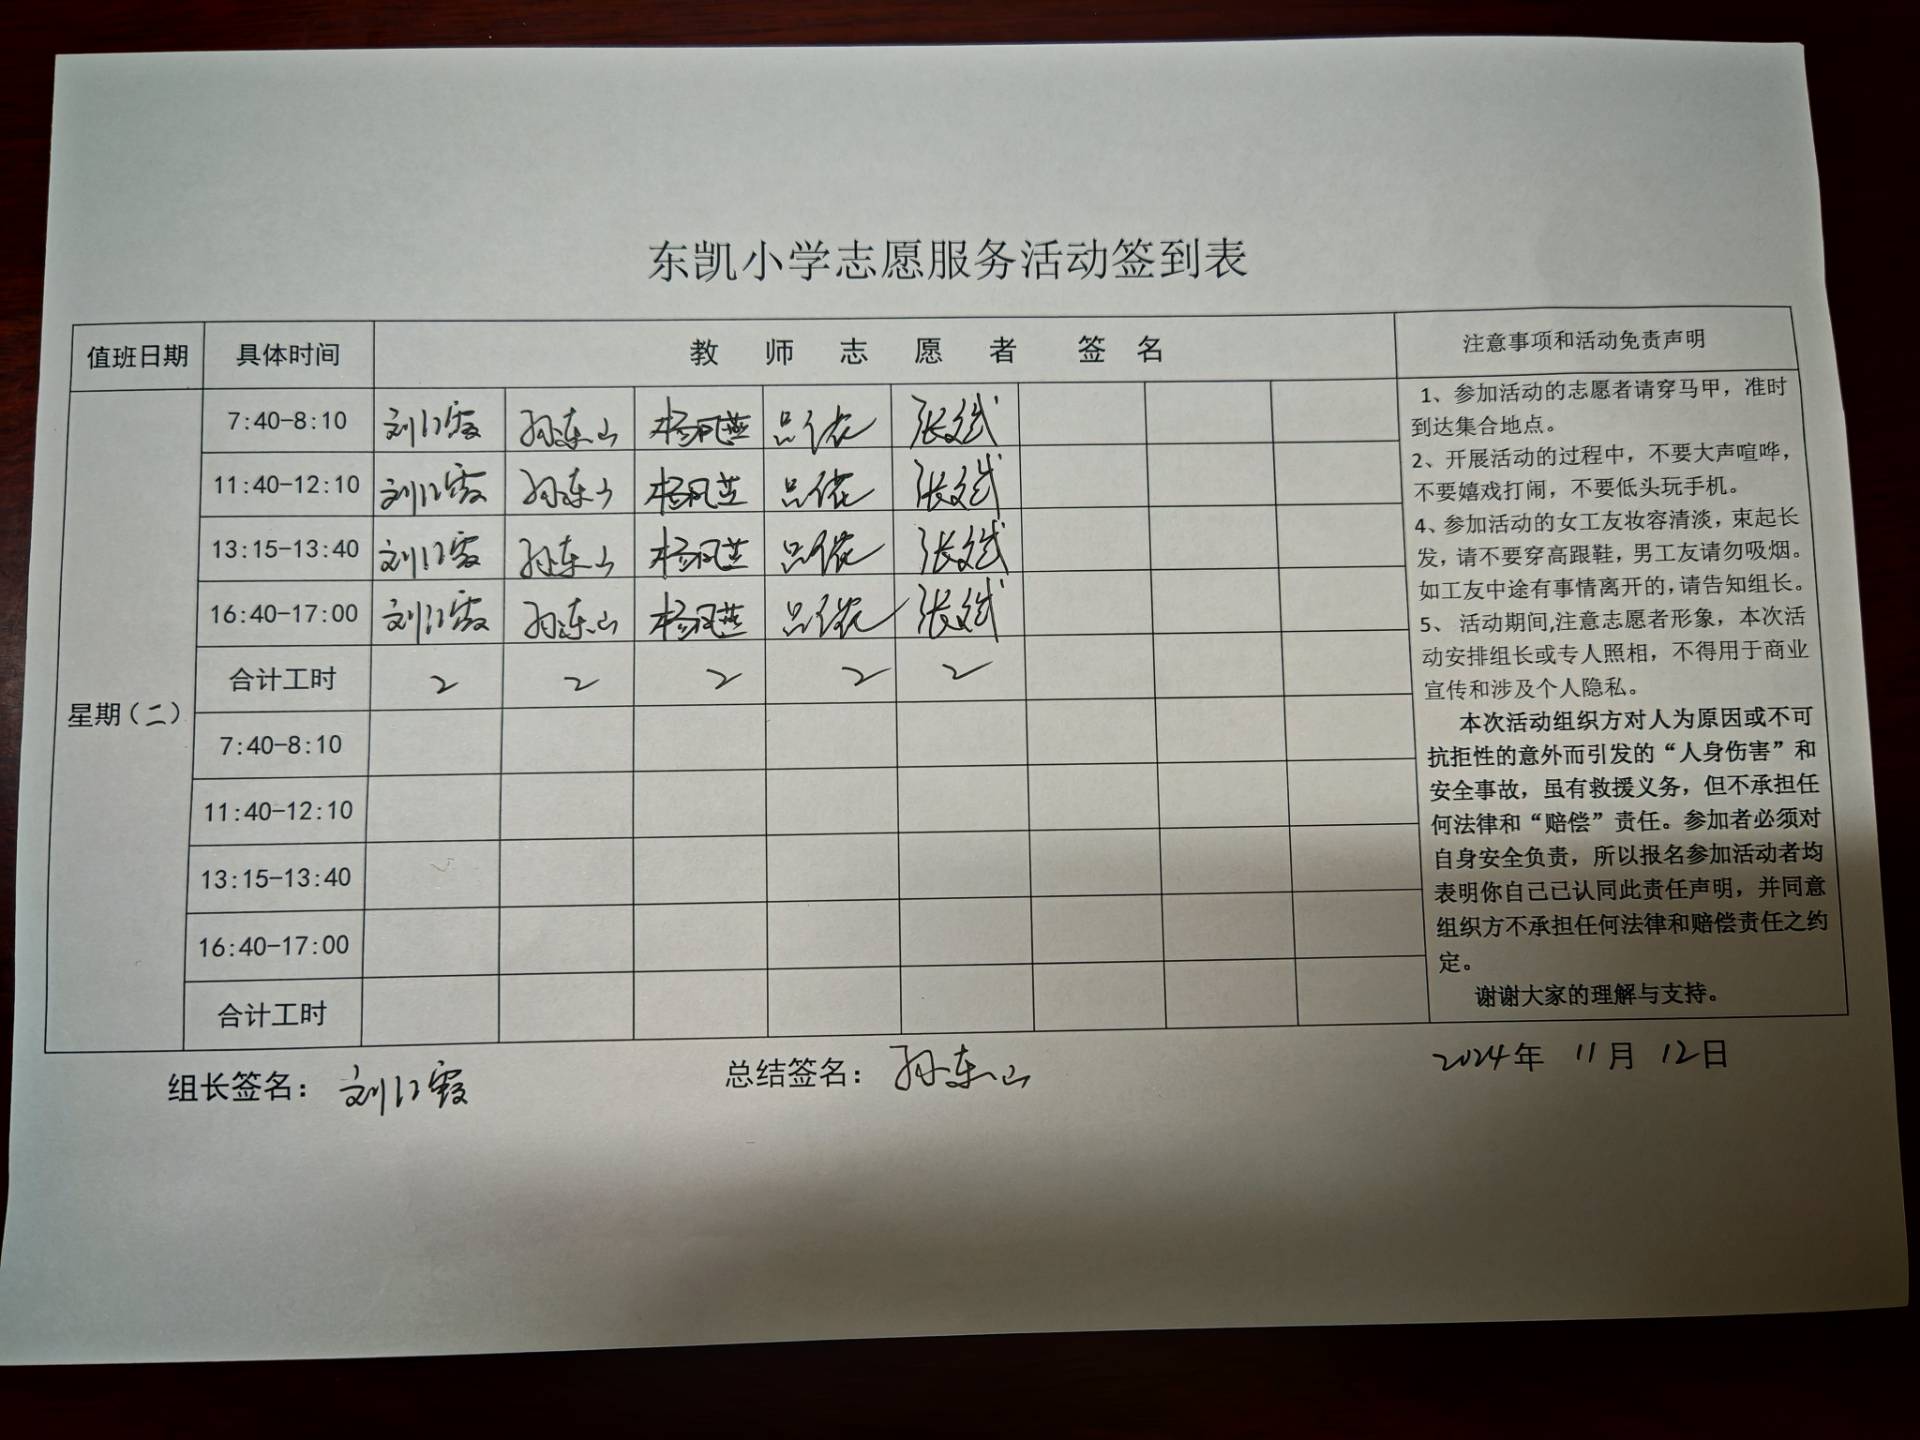 东凯小学志愿服务活动签到表
值班日期 具体时间 教师志愿者 签名 注意事项和活动免责声明
星期(二)
7:40-8:10 孙东山 杨凤芝 吕依 张斌
11:40-12:10 孙东山 杨凤芝 吕依 张斌
13:15-13:40 孙东山 杨凤芝 吕依 张斌
16:40-17:00 孙东山 杨凤芝 吕依 张斌
合计工时 2 2 2 2 2
7:40-8:10
11:40-12:10
13:15-13:40
16:40-17:00
合计工时
1、参加活动的志愿者请穿马甲，准时
到达集合地点。
2、开展活动的过程中，不要大声喧哗，
不要嬉戏打闹，不要低头玩手机。
4、参加活动的女工友妆容清淡，束起长
发，请不要穿高跟鞋，男工友请勿吸烟。
如工友中途有事情离开的，请告知组长。
5、 活动期间,注意志愿者形象，本次活
动安排组长或专人照相，不得用于商业
宣传和涉及个人隐私。
本次活动组织方对人为原因或不可
抗拒性的意外而引发的“人身伤害”和
安全事故，虽有救援义务，但不承担任
何法律和“赔偿”责任。参加者必须对
自身安全负责，所以报名参加活动者均
表明你自己已认同此责任声明，并同意
组织方不承担任何法律和赔偿责任之约
定。
谢谢大家的理解与支持。
组长签名： 总结签名：孙东山 2024年 11月 12日